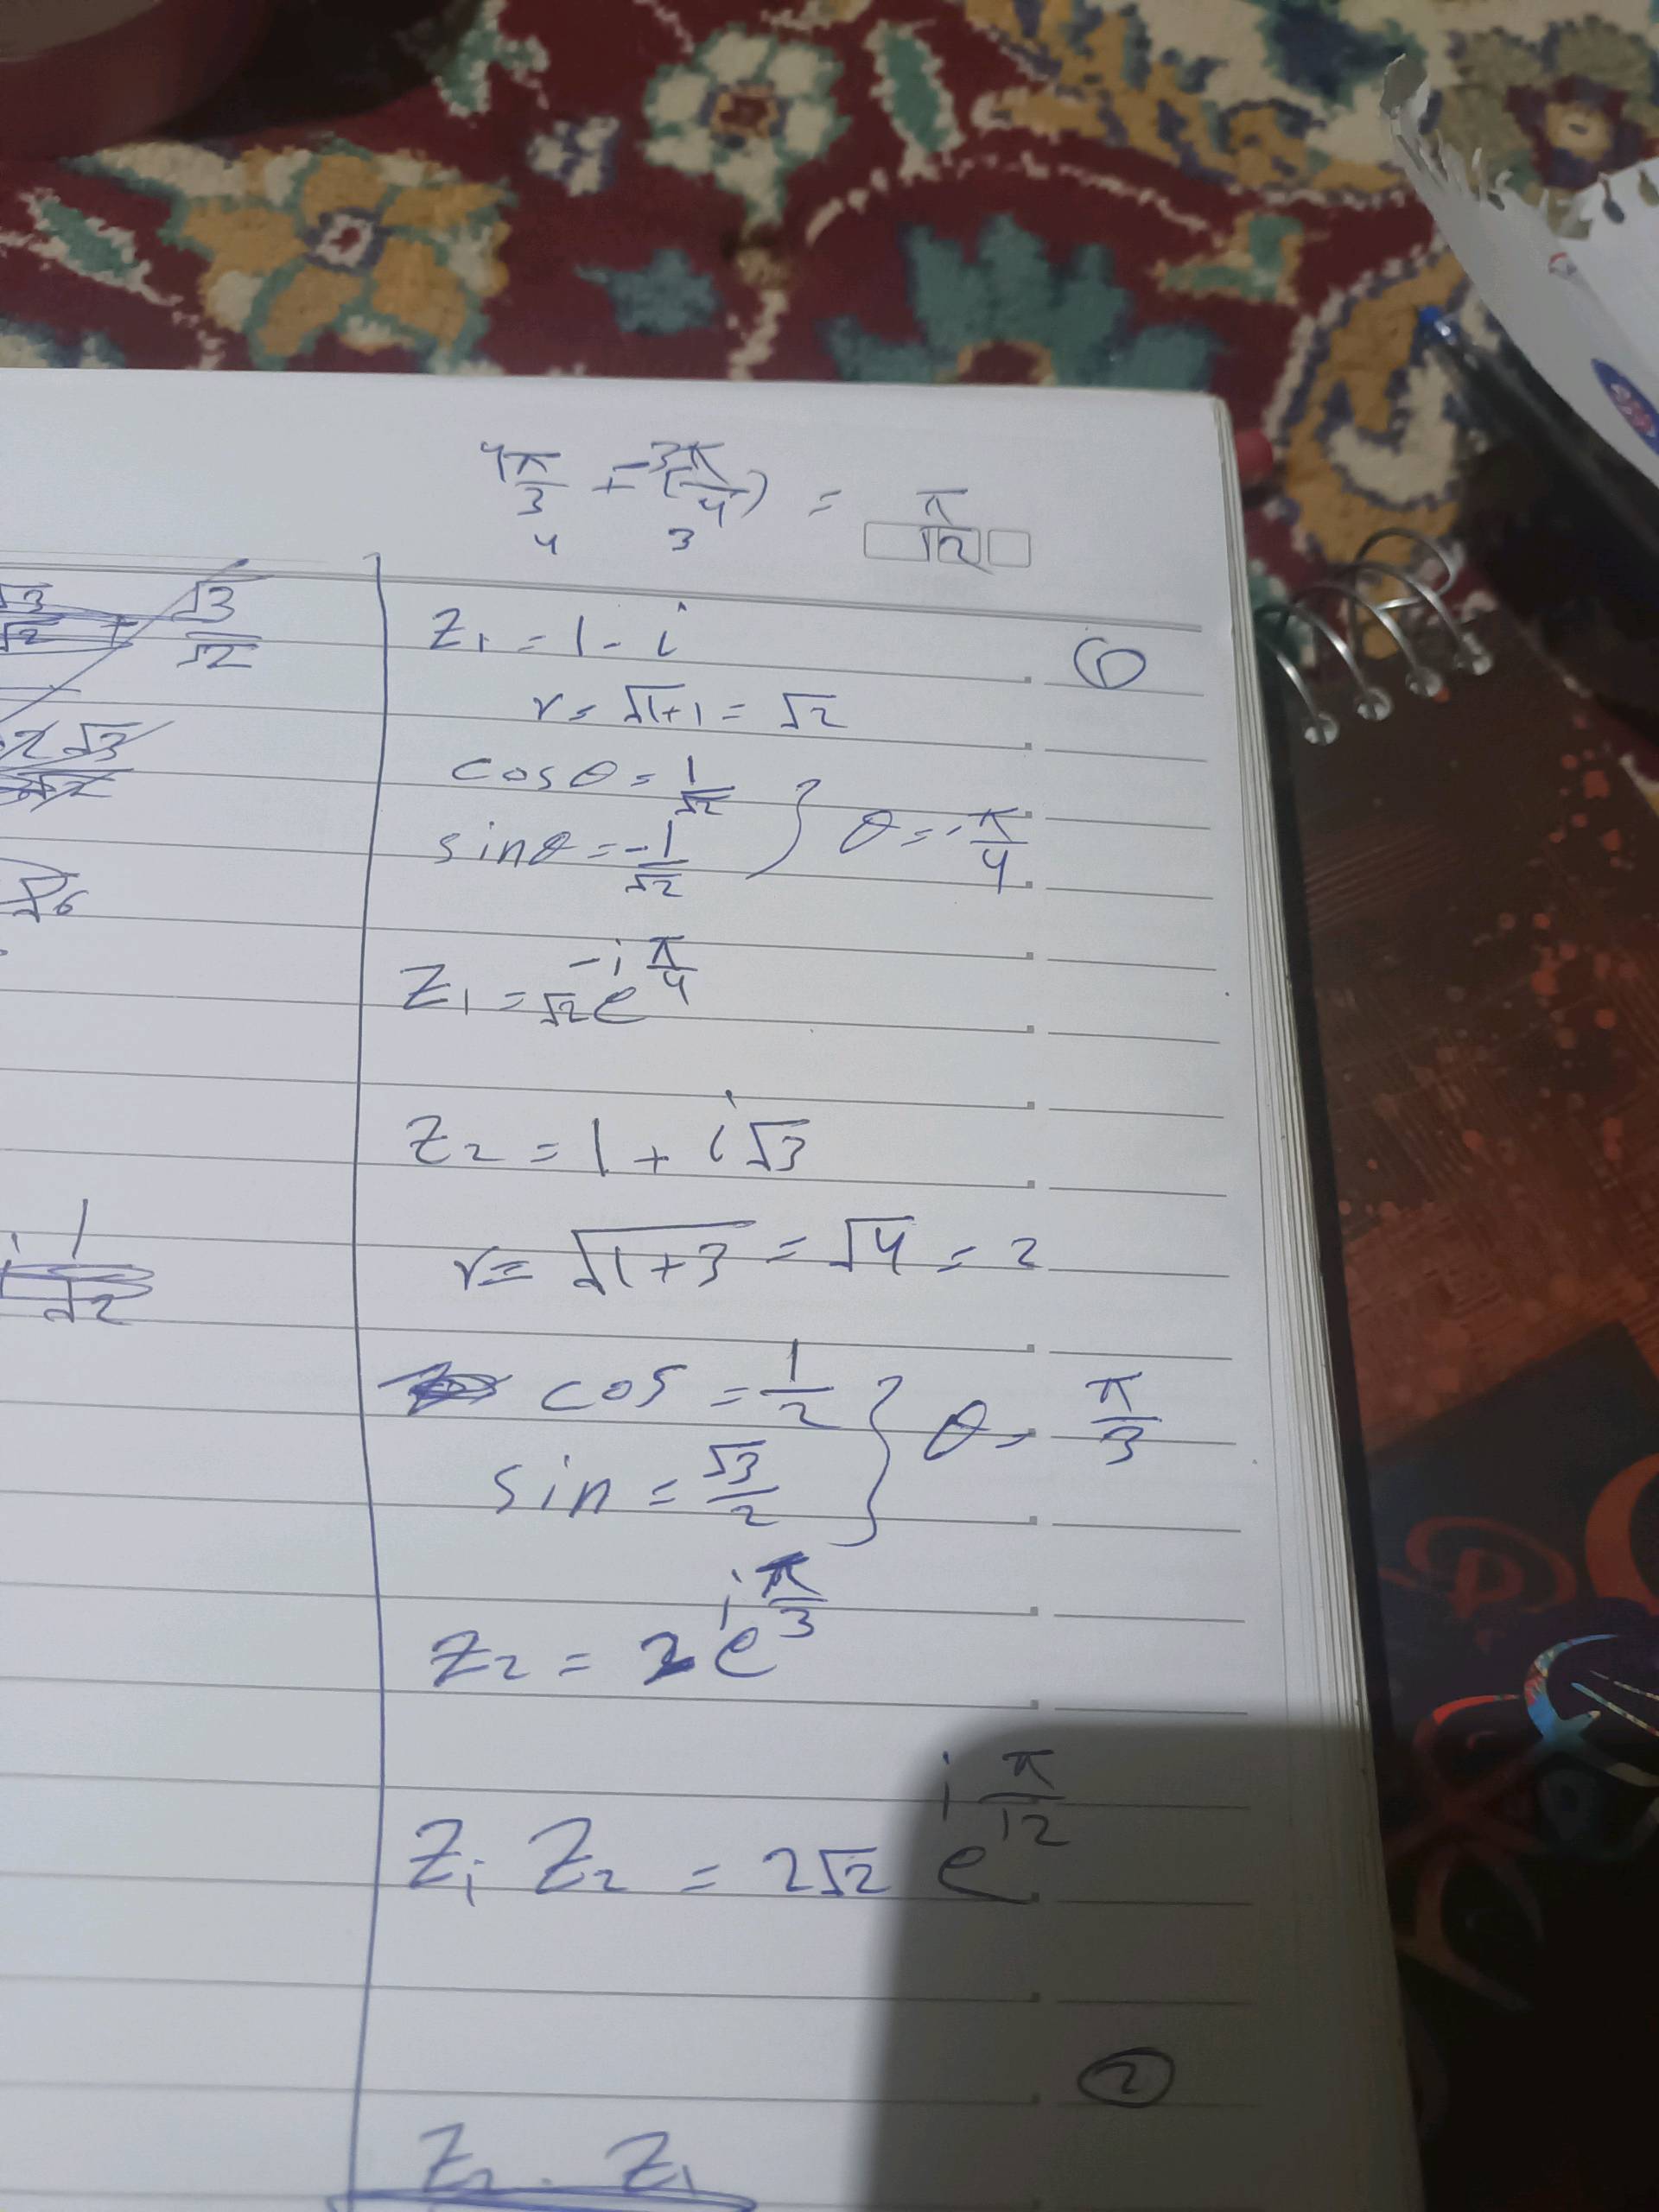 4π/3 + -3(π/4) = π/12
4 3
√3/√2 + √3/√2
2√3
√6
1/√2
z₁ = 1 - i
6
r = √1+1 = √2
cosθ = 1/√2
sinθ = -1/√2 } θ = -π/4
z₁ = √2 e^(-i π/4)
z₂ = 1 + i√3
r = √1+3 = √4 = 2
cos = 1/2
sin = √3/2 } θ = π/3
z₂ = 2 e^(i π/3)
z₁ z₂ = 2√2 e^(i π/12)
2
z₂ . z₁